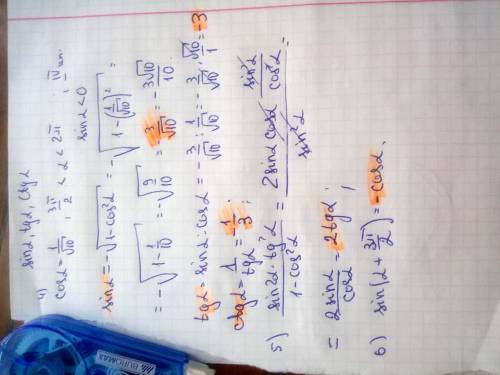 4) sin α tg α, ctg α
cos α = 1/√10 ; 3π/2 < α < 2π ; IV
sin α < 0
sin α = -√(1 - cos²α) = -√(1 - (1/√10)²) =
= -√(1 - 1/10) = -√(9/10) = -3/√10 = -3√10/10.
tg α = sin α : cos α = -3/√10 : 1/√10 = -3/√10 · √10/1 = -3
ctg α = 1/tg α = 1/3 ;
5) (sin 2α · tg²α)/(1 - cos²α) = (2 sin α cos α · sin²α/cos²α)/(sin²α) =
= 2 sin α/cos α = 2 tg α ;
6) sin(α + 3π/2) = -cos α.
BUROMAX